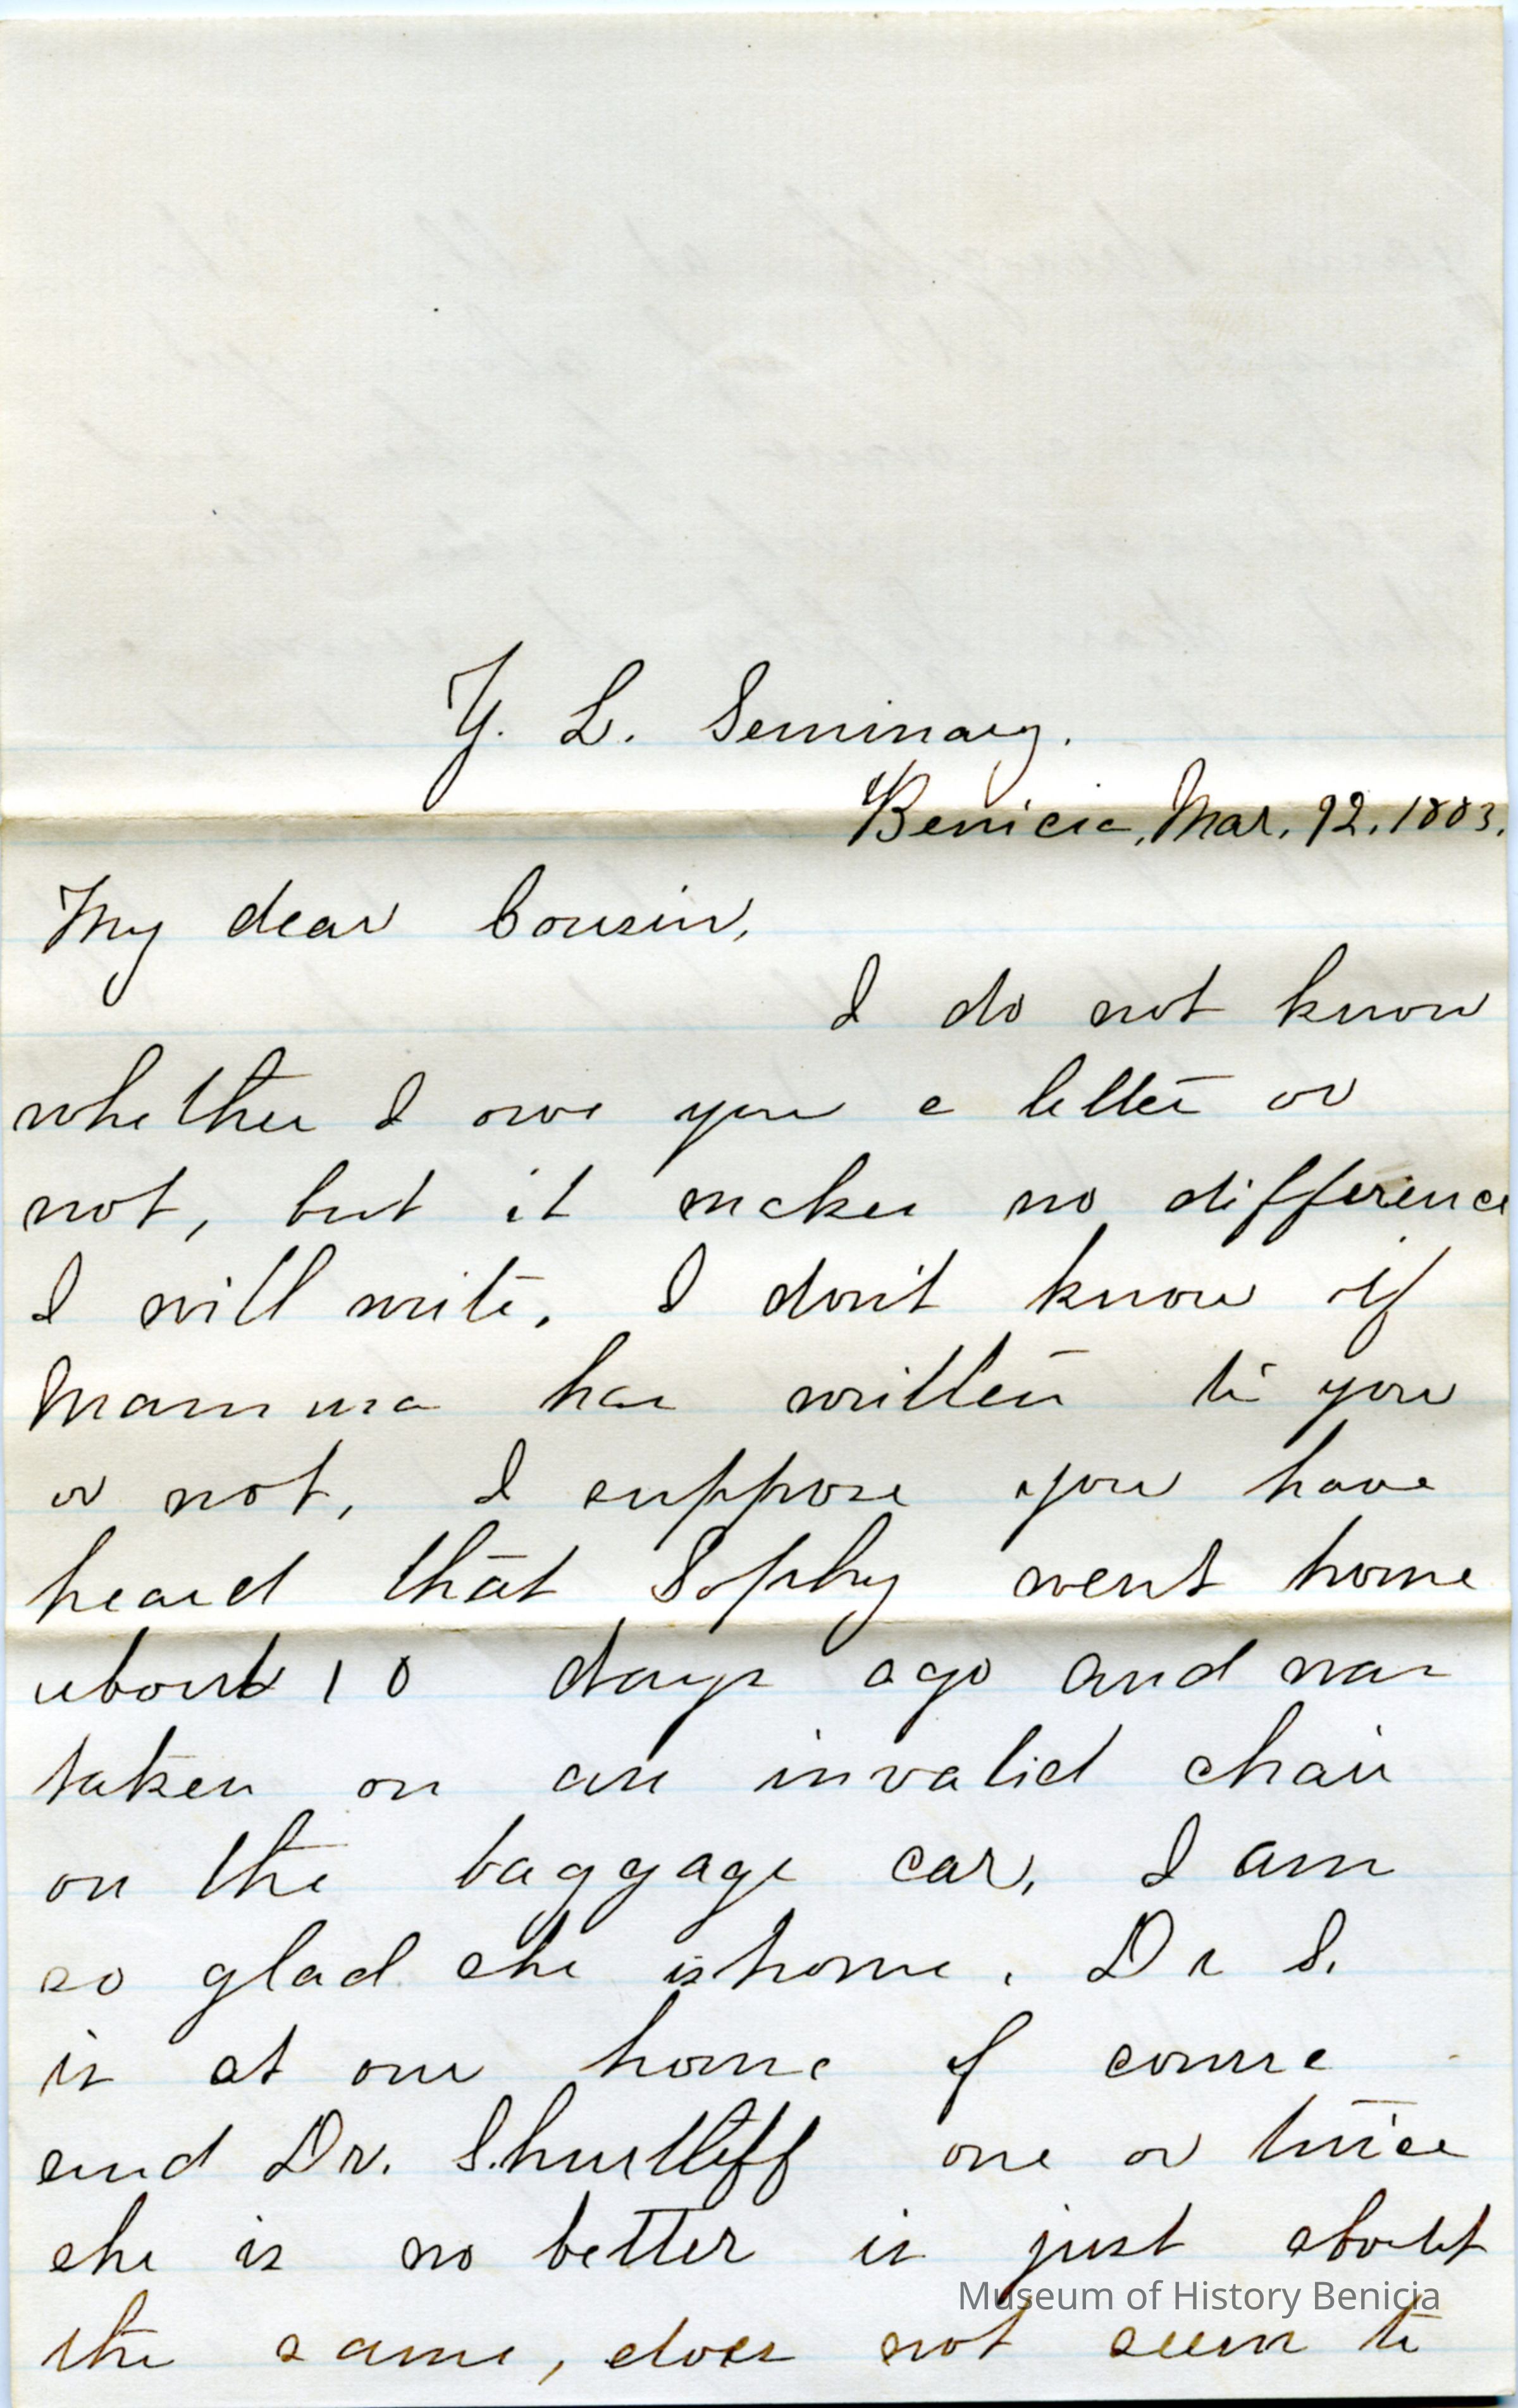 Y. L. Seminary.
Benicia, Mar. 12. 1883.
My dear Cousin,
I do not know
whether I owe you a letter or
not, but it makes no difference
I will write. I don't know if
Mamma has written to you
or not, I suppose you have
heard that Sophy went home
about 10 days ago and was
taken on an invalid chair
on the baggage car, I am
so glad she is home. Dr S.
is at our home of course
and Dr. Shurtleff one or twice
she is no better is just about
Museum of History Benicia
the same, does not seem to